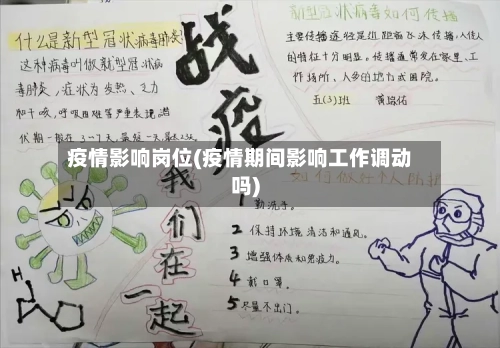 什么是新型冠状病毒肺炎
这种病毒叫做新型冠状病
毒肺炎,症状为发热、乏力
和干咳,呼吸困难等严重表现,潜
伏期一般在3—7天,最短一天,最长
战疫
我们在一起
新型冠状病毒如何传播
主要传播途径是近距离飞沫传播,人传人
的特征十分明显。传播通常发在家里、工
作场所、人多的地方或医院。
五(3)班
疫情影响岗位(疫情期间影响工作调动
吗)
如何做好个人防护
1 勤洗手。
2 保持环境清洁和通风。
3 增强体质和免疫力。
4 戴口罩,
5 尽量不出门。
H